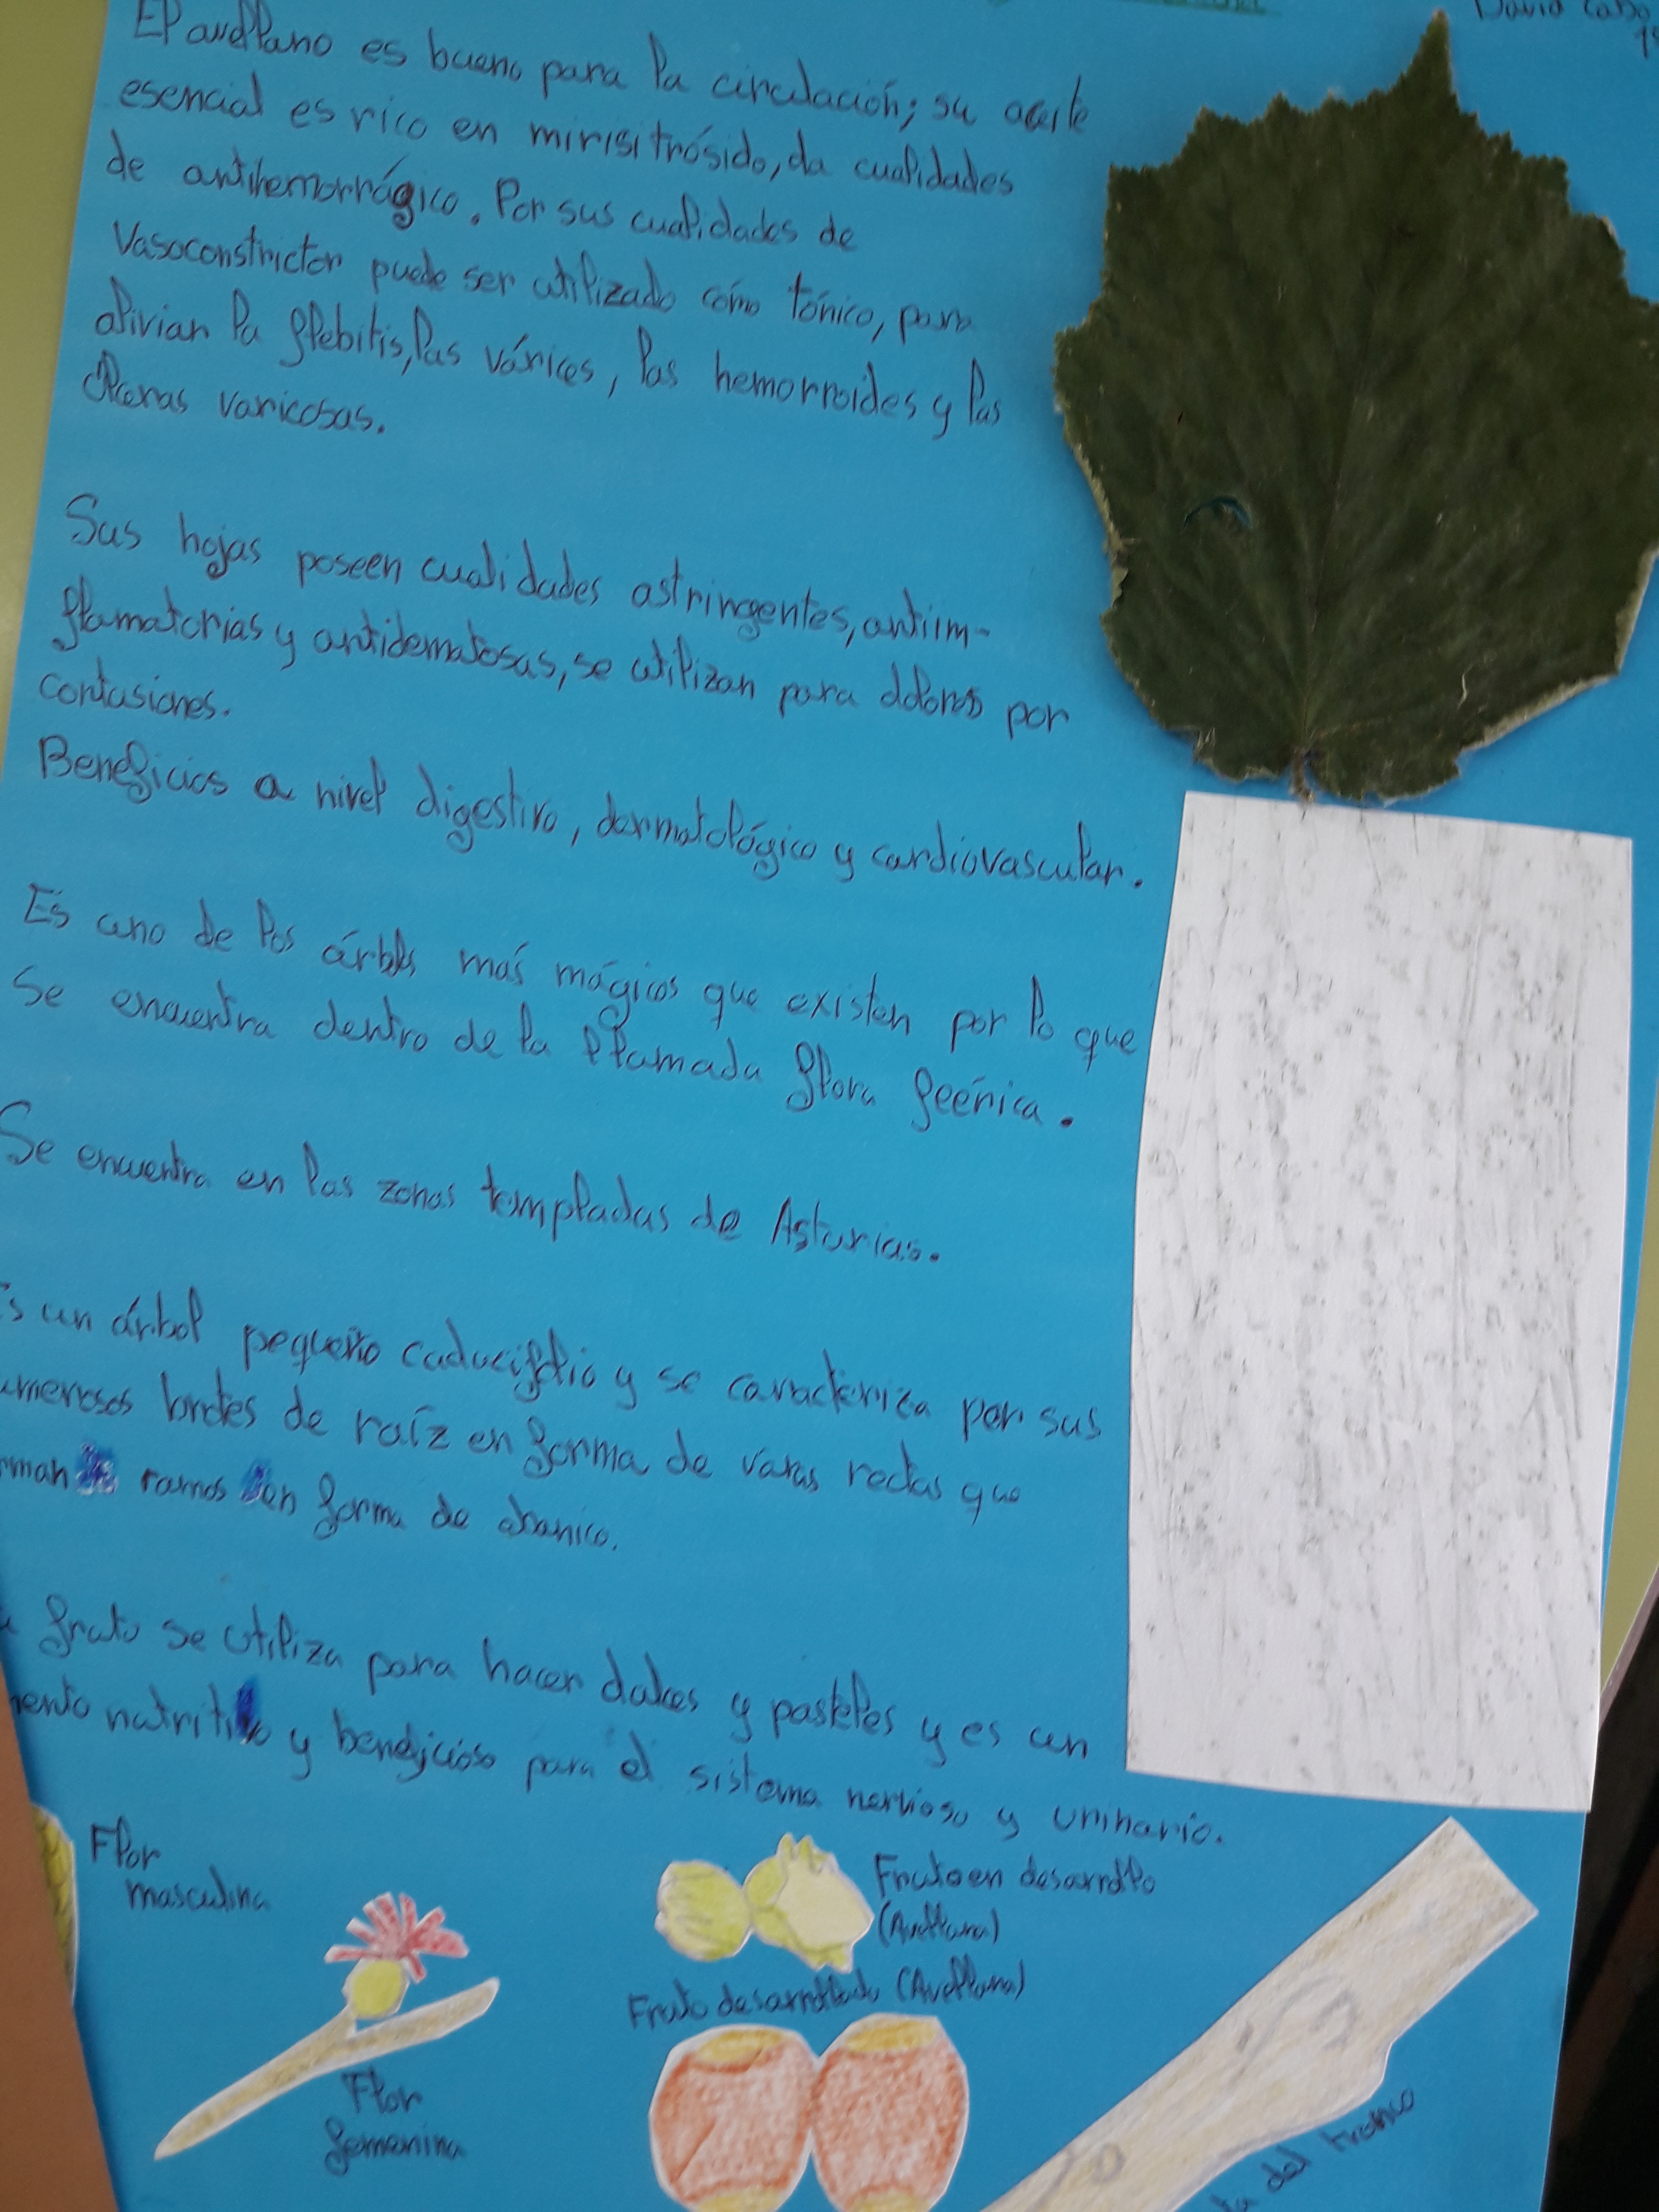 David
El avellano es bueno para la circulación; su aceite
esencial es rico en mirisitrósido, da cualidades
de antihemorrágico. Por sus cualidades de
Vasoconstrictor puede ser utilizado cómo tónico, para
aliviar la flebitis, las várices, las hemorroides y las
úlceras varicosas.
Sus hojas poseen cualidades astringentes, antiim-
flamatorias y antidematosas, se utilizan para dolores por
contusiones.
Beneficios a nivel digestivo, dermatológico y cardiovascular.
Es uno de los árboles más mágicos que existen por lo que
Se encuentra dentro de la llamada flora feérica.
Se encuentra en las zonas templadas de Asturias.
s un árbol pequeño caducifolio y se caracteriza por sus
umerosos brotes de raíz en forma de varas rectas que
rman ramos en forma de abanico.
fruto se utiliza para hacer dulces y pasteles y es un
mento nutritivo y beneficioso para el sistema nervioso y urinario.
Flor
masculina
Fruto en desarrollo
(Avellana)
Fruto desarrollado (Avellana)
Flor
femenina
del tronco